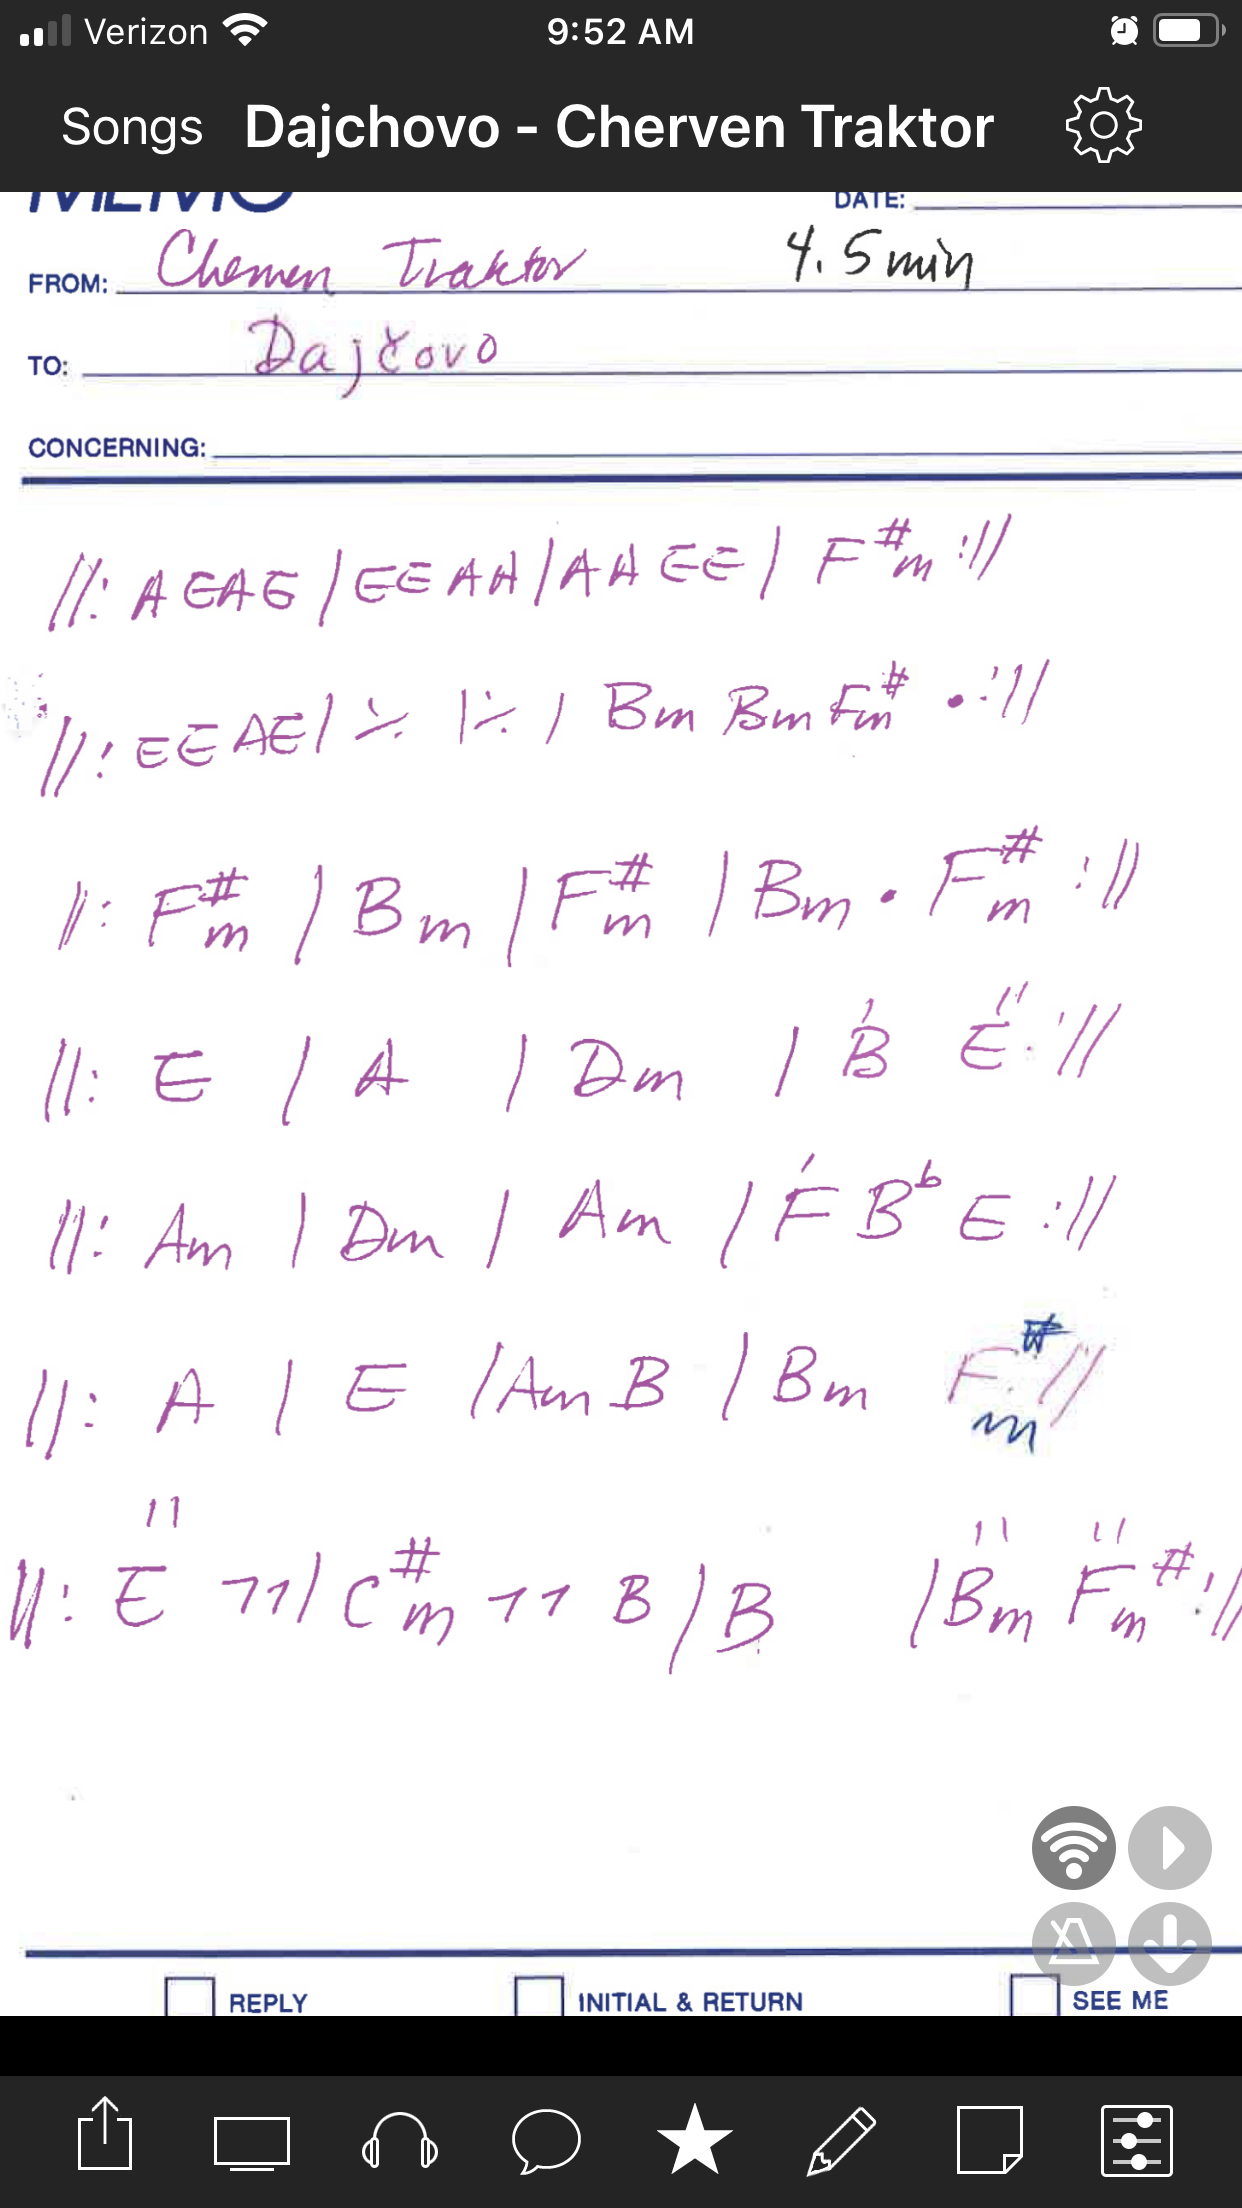 Verizon 9:52 AM
Songs Dajchovo - Cherven Traktor
MEMO DATE:
FROM: Cherven Traktor 4.5 min
TO: Dajčovo
CONCERNING:
//: A E A E / E E A A / A A E E / F#m ://
//: E E A E / ٪ / ٪ / Bm Bm F#m • ://
//: F#m / Bm / F#m / Bm • F#m ://
//: E / A / Dm / B' E'' ://
//: Am / Dm / Am / F' Bb E ://
//: A / E / Am B / Bm F#m ://
//: E'' 7 1 1 / C#m 1 1 B / B / Bm'' F#m'' ://
REPLY INITIAL & RETURN SEE ME